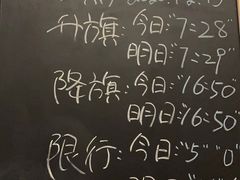 升旗:今日:"7=28"
明日:"7=29"
降旗:今日:"16:50"
明日:"16:50"
限行:今日:"5""0"